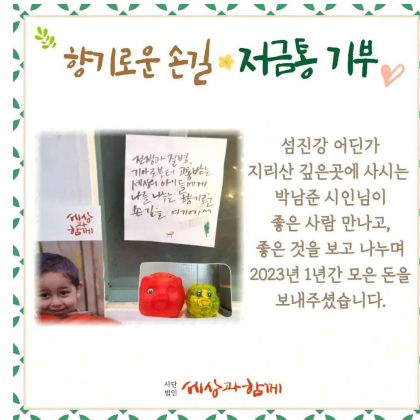 향기로운 손길 저금통 기부
전쟁과 질병,
기아로부터 고통받는
세상의 아이들에게
나를 나누는 향기로운
손길을 여기에~
세상과
함께
섬진강 어딘가
지리산 깊은곳에 사시는
박남준 시인님이
좋은 사람 만나고,
좋은 것을 보고 나누며
2023년 1년간 모은 돈을
보내주셨습니다.
사단
법인 세상과함께